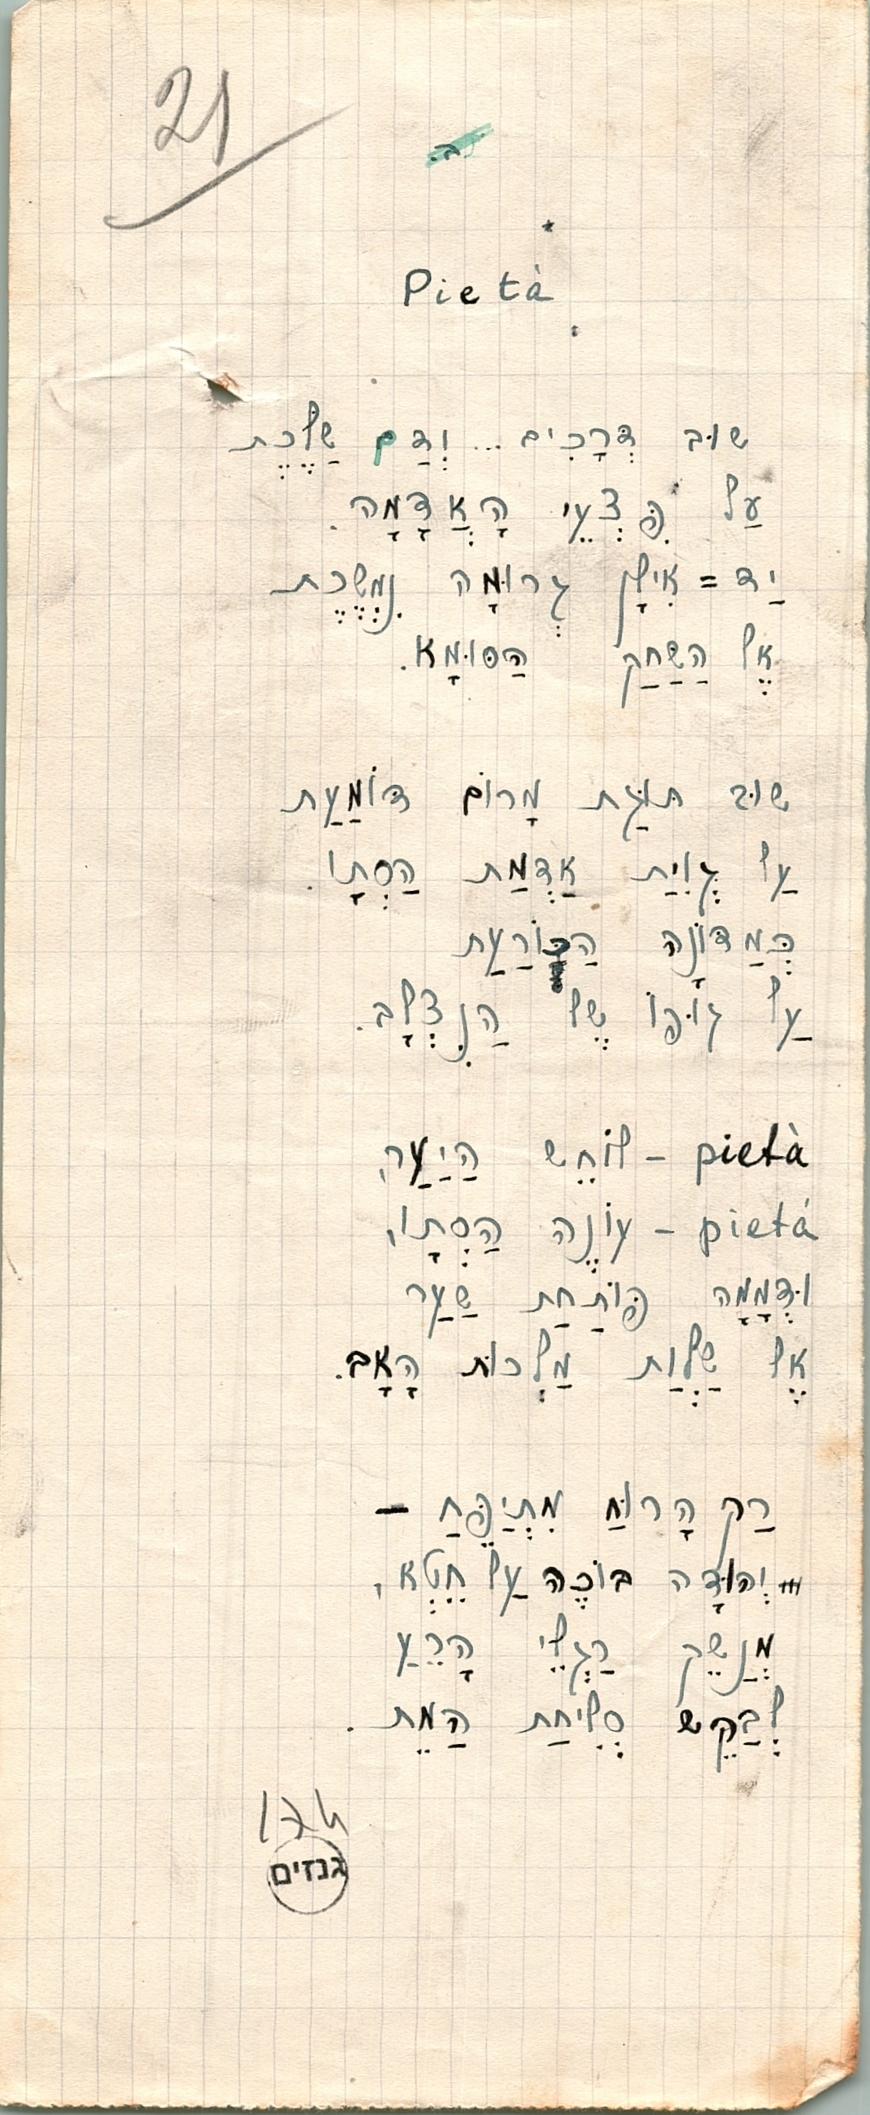 21
ב.
*
Pietà
שׁוּב דְּרָכִים... וְדַם שַׁלֶּכֶת
עַל פִּצְעֵי הָאֲדָמָה.
יַד=אִילָן גְּרוּמָה נִמְשֶׁכֶת
אֶל הַשַּׁחַק הַסּוּמָא.
שׁוּב תּוּגַת מָרוֹם דּוֹמַעַת
עַל גְּוִיַּת אַדְמַת הַסְּתָו.
כְּמַדּוֹנָה הַכּוֹרַעַת
עַל גּוּפוֹ שֶׁל הַנִּצְלָב.
pietà – לוֹחֵשׁ הַיַּעַר,
pietà – עוֹנֶה הַסְּתָו,
וּדְמָמָה פּוֹתַחַת שַׁעַר
אֶל שַׁלְוַת מַלְכוּת הָאָב.
רַק הָרוּחַ מִתְיַפֵּחַ –
יְהוּדָה בּוֹכֶה עַל חֶטְא,
מְנַשֵּׁק רַגְלֵי הָרֵעַ
לְבַקֵּשׁ סְלִיחַת הַמֵּת.
גנזים